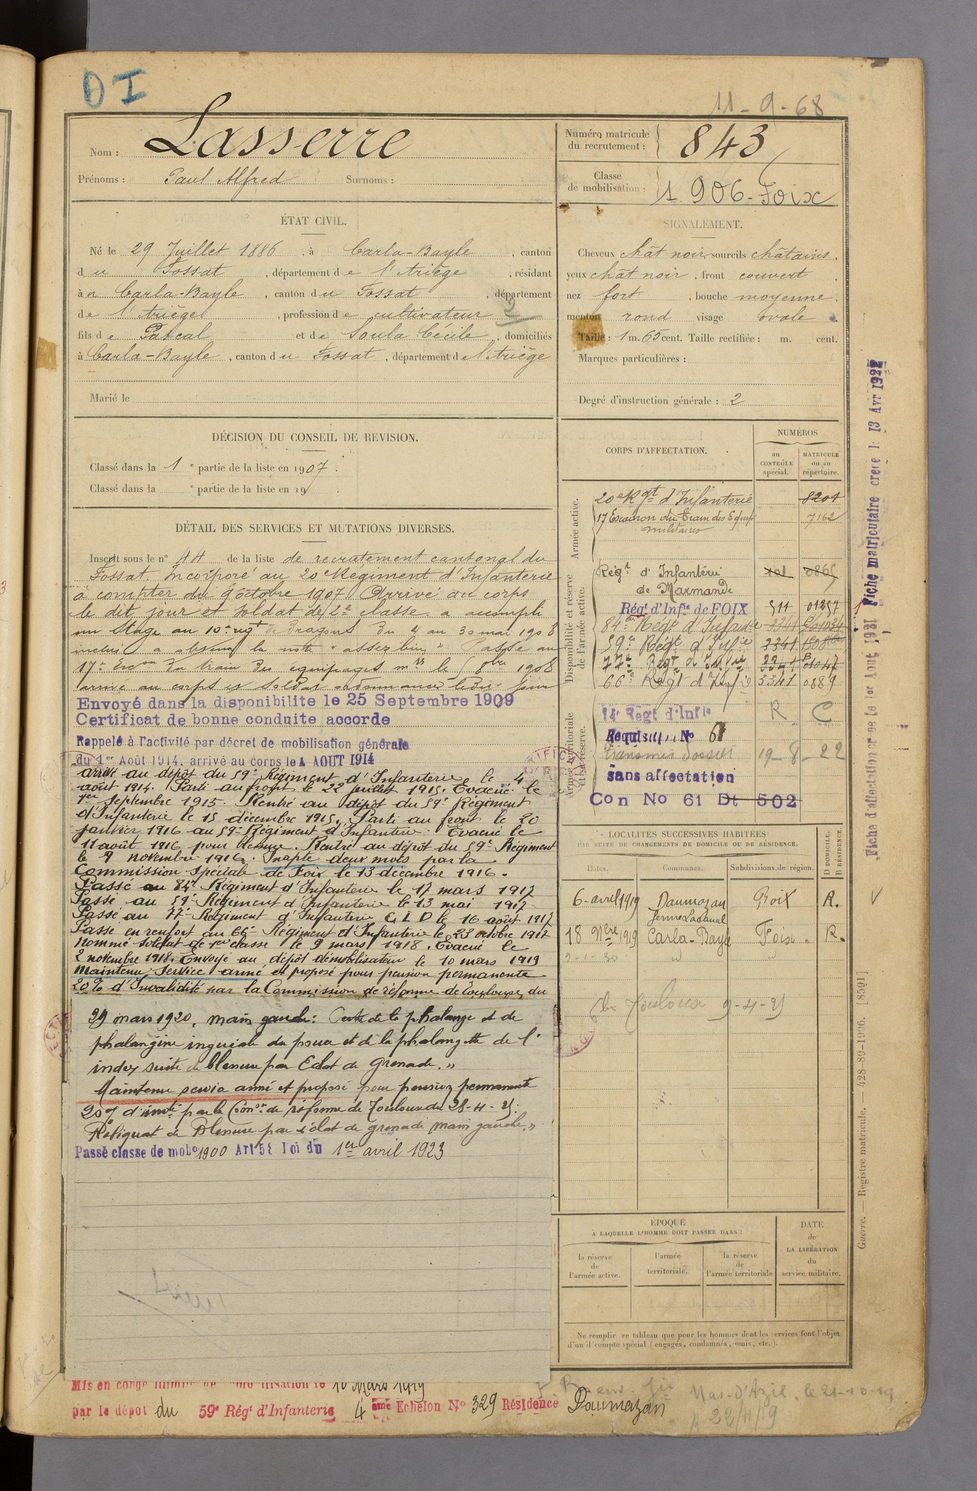 OI
11-9-68
Nom : Lasserre
Prénoms : Paul Alfred Surnoms :
Numéro matricule du recrutement : 843
Classe de mobilisation : 1906-Foix
ÉTAT CIVIL.
Né le 29 Juillet 1886, à Carla-Bayle, canton
du Fossat, département de l'Ariège, résidant
à Carla-Bayle, canton du Fossat, département
de l'Ariège, profession de cultivateur 2
fils de Pascal et de Soula Cécile, domiciliés
à Carla-Bayle, canton du Fossat, département de l'Ariège
Marié le
SIGNALEMENT.
Cheveux chât noir, sourcils châtains,
yeux chât noir, front couvert
nez fort, bouche moyenne,
menton rond visage ovale.
Taille : 1 m. 65 cent. Taille rectifiée : m. cent.
Marques particulières :
Degré d'instruction générale : 2
DÉCISION DU CONSEIL DE REVISION.
Classé dans la 1e partie de la liste en 1907.
Classé dans la e partie de la liste en 19
DÉTAIL DES SERVICES ET MUTATIONS DIVERSES.
Inscrit sous le n° 44 de la liste de recrutement cantonal du
Fossat. Incorporé au 20e Régiment d'Infanterie
à compter du 9 octobre 1907. Arrivé au corps
le dit jour et soldat de 2e classe. a accompli
un stage au 10e regt de dragons du 4 au 30 mai 1908
inclus a obtenu la note "assez bien" Passé au
17e Escon du train des équipages mres le 1908
arrivé au corps et soldat ledit jour
Envoyé dans la disponibilite le 25 Septembre 1909
Certificat de bonne conduite accorde
Rappelé à l'activité par décret de mobilisation générale
du 1er Août 1914, arrivé au corps le 4 AOUT 1914
arrivé au dépôt du 59e Régiment d'Infanterie le 4
août 1914. Parti au front le 22 juillet 1915. Evacué le
1er Septembre 1915. Rentré au dépôt du 59e Régiment
d'Infanterie le 15 décembre 1915. Parti au front le 20
janvier 1916 au 59e Régiment d'Infanterie. Evacué le
11 août 1916 pour blessure. Rentré au dépôt du 59e Régiment
le 9 novembre 1916. Inapte deux mois par la
Commission spéciale de Foix le 13 décembre 1916.
Passé au 84e Régiment d'Infanterie le 17 mars 1917
Passé au 59e Régiment d'Infanterie le 13 mai 1917
Passé au 77e Régiment d'Infanterie C I D le 16 août 1917
Passé en renfort au 66e Régiment d'Infanterie le 23 octobre 1917
Nommé soldat de 1ere classe le 9 mars 1918. Evacué le
2 novembre 1918. Envoyé au dépôt démobilisateur le 10 mars 1919
Maintenu Service armé et proposé pour pension permanente
20% d'Invalidité par la Commission de réforme de Toulouse, du
29 mars 1920, main gauche: Perte de la phalange et de
phalangine du pouce et de la phalangette de l'
index suite de blessure par Eclat de grenade."
Maintenu service armé et proposé pour pension permanente
20% d'invté par la Comon de réforme de Toulouse du 28-4-21:
Reliquat de Blessure par éclat de grenade main gauche."
Passé classe de mobo 1900 Art 58 loi du 1er avril 1923
CORPS D'AFFECTATION.
NUMÉROS
au CONTRÔLE spécial.
MATRICULE ou au répertoire.
Armée active.
20e Rgt d'Infanterie 8201
17 Escadron du Train des Equip. militaires 7162
Disponibilité et réserve de l'armée active.
Régt d'Infanterie de Marmande
Régt d'Infie de FOIX 511 01257
84e Régt d'Infanterie
59e Régt d'Infie
77e Régt d'Infie
66e Régt d'Infie 3341 0889
Armée territoriale et sa réserve.
14e Regt d'Infie R C
Requis No 61
Transmis Dossier 19-8-22
sans affectation
Con No 61 Dt 502
LOCALITÉS SUCCESSIVES HABITÉES
PAR SUITE DE CHANGEMENTS DE DOMICILE OU DE RÉSIDENCE.
Dates. Communes. Subdivisions de région. D DOMICILE. R RÉSIDENCE.
6-avril 1919 Daumazan Foix R.
18 9bre 1919 Carla-Bayle Foix R.
Toulouse 9-4-21
ÉPOQUE
À LAQUELLE L'HOMME DOIT PASSER DANS :
la réserve de l'armée active.
l'armée territoriale.
la réserve de l'armée territoriale
DATE de LA LIBÉRATION du service militaire.
Ne remplir ce tableau que pour les hommes dont les services font l'objet
d'un décompte spécial (engagés, condamnés, omis, etc.).
Mis en congé illimité de démobilisation le 10 Mars 1919
par le dépôt du 59e Régt d'Infanterie 4 ème Echelon No 329 Résidence Daumazan
Mas-d'Azil, le 21-10-19
22/11/19
Fiche d'affectation créée le 1er Aout 1931 Fiche matriculaire creee le 13 Avr 1922
Guerre. — Registre matricule. — 428-89-1906. [8591]